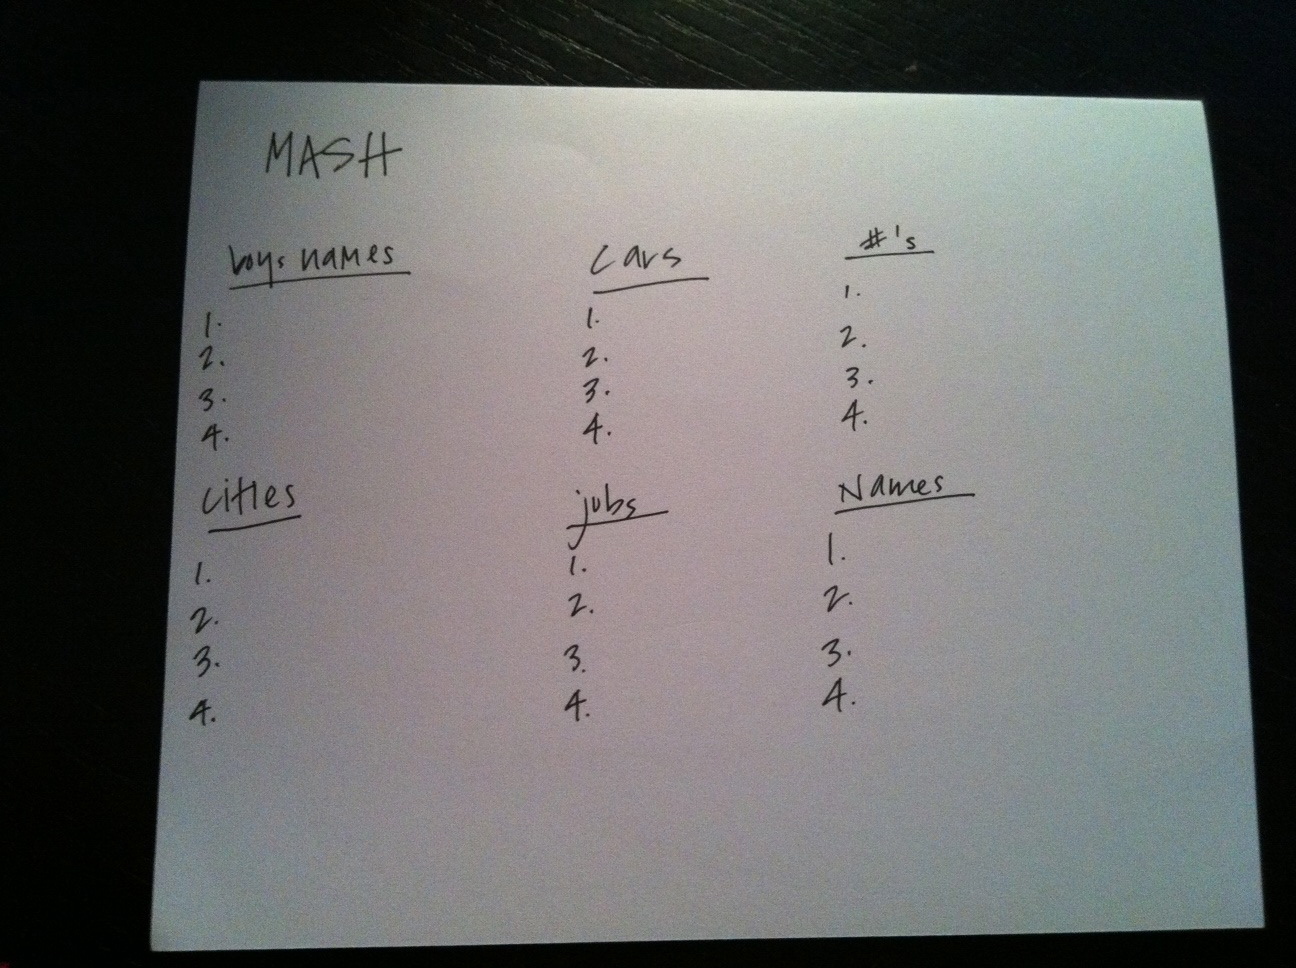 MASH
boys names
1.
2.
3.
4.
cars
1.
2.
3.
4.
#'s
1.
2.
3.
4.
cities
1.
2.
3.
4.
jobs
1.
2.
3.
4.
Names
1.
2.
3.
4.